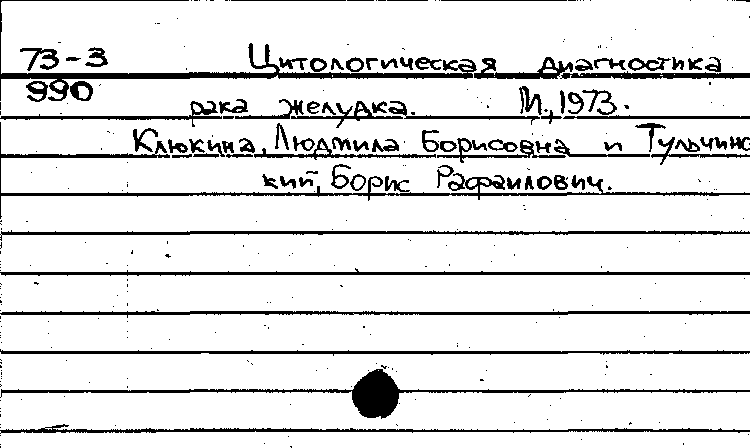 73-3 Цитологическая диагностика
990 рака желудка. М., 1973.
Клюкина, Людмила Борисовна и Тульчинс
кий, Борис Рафаилович.